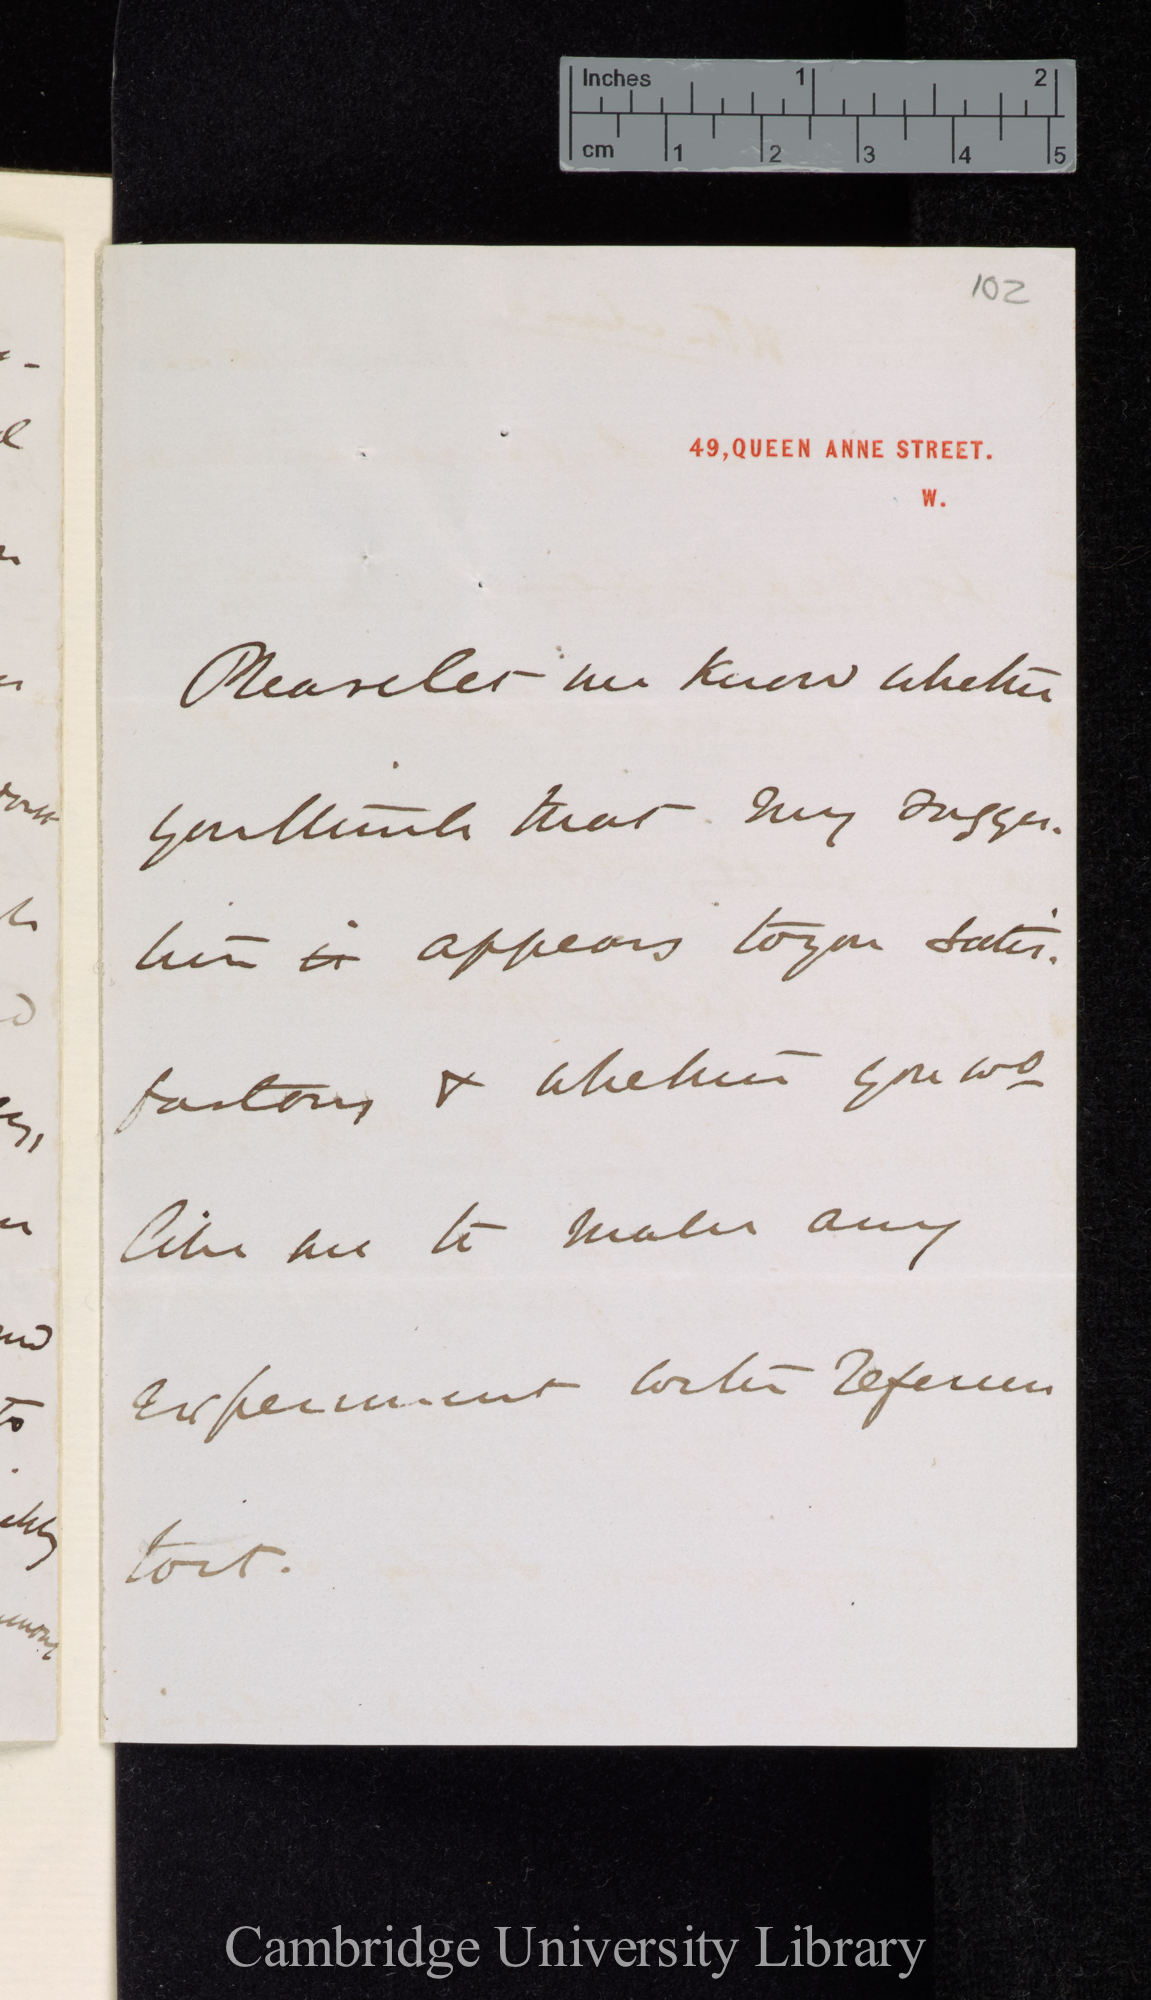 Inches 1 2
cm 1 2 3 4 5
102
49, QUEEN ANNE STREET.
W.
Please let me know whether
you think that my sugges-
tion is appears to you satis-
factory & whether you wd
like me to make any
experiment with reference
to it.
Cambridge University Library